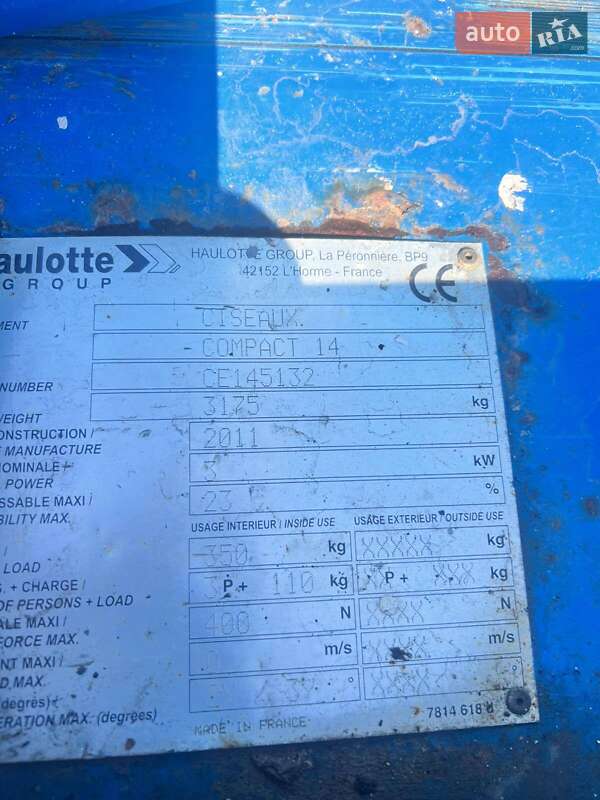 auto RIA .com
aulotte
GROUP
HAULOTTE GROUP, La Péronnière, BP9
42152 L'Horme - France
CE
MENT CISEAUX
COMPACT 14
NUMBER CE145132
WEIGHT 3175 kg
ONSTRUCTION / 2011
MANUFACTURE
NOMINALE 3 kW
POWER
SSABLE MAXI / 23 %
BILITY MAX.
USAGE INTERIEUR / INSIDE USE USAGE EXTERIEUR / OUTSIDE USE
/ 350 kg XXXX kg
LOAD
. + CHARGE / P + 110 kg XP + XXX kg
OF PERSONS + LOAD
ALE MAXI / 400 N XXXX N
FORCE MAX.
NT MAXI / 0 m/s XXXX m/s
D MAX.
(degrés) ° XXXX °
ERATION MAX. (degrees)
MADE IN FRANCE 7814 618